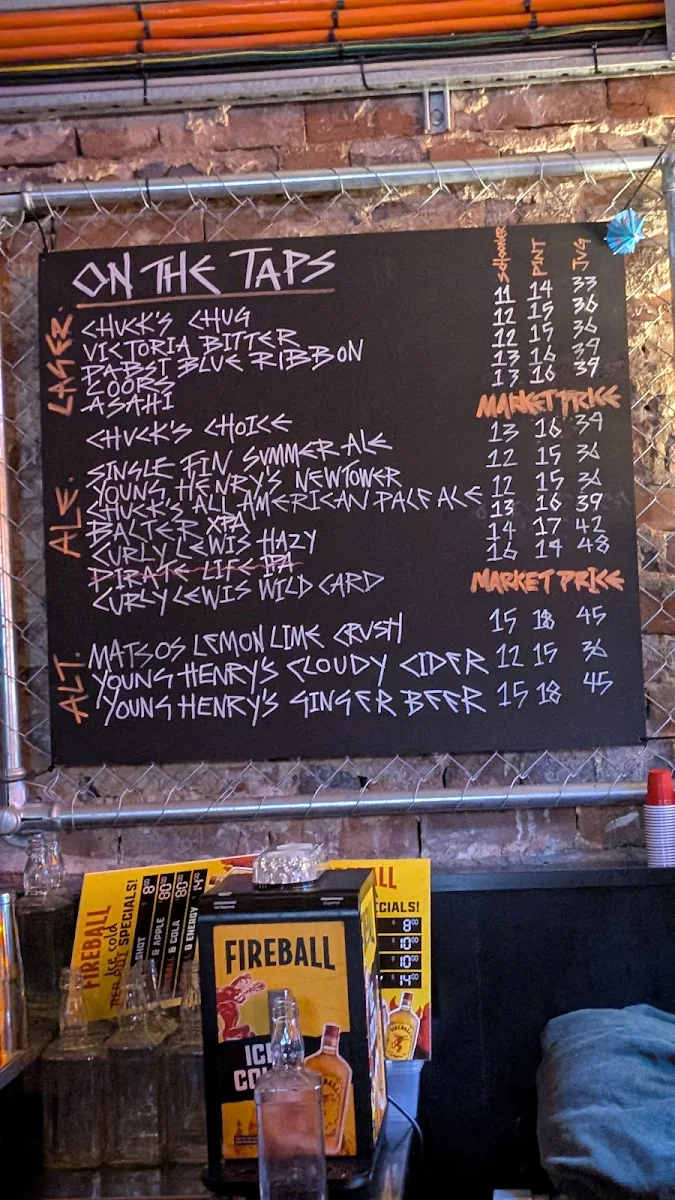 ON THE TAPS
SCHOONER PINT JUG
LAGER.
CHUCK'S CHUG 11 14 33
VICTORIA BITTER 12 15 36
PABST BLUE RIBBON 12 15 36
COORS 13 16 39
ASAHI 13 16 39
CHUCK'S CHOICE MARKET PRICE
ALE.
SINGLE FIN SUMMER ALE 13 16 39
YOUNG HENRY'S NEWTOWER 12 15 36
CHUCK'S ALL AMERICAN PALE ALE 12 15 36
BALTER XPA 13 16 39
CURLY LEWIS HAZY 14 17 42
PIRATE LIFE IPA 16 19 48
CURLY LEWIS WILD CARD MARKET PRICE
ALT.
MATSOS LEMON LIME CRUSH 15 18 45
YOUNG HENRY'S CLOUDY CIDER 12 15 36
YOUNG HENRY'S GINGER BEER 15 18 45
FIREBALL
ice cold
SPECIALS!
SHOT $8
& APPLE
& COLA
& ENERGY
FIREBALL
ICE
CO
CIALS!
$8.00
$10.00
$10.00
$14.00